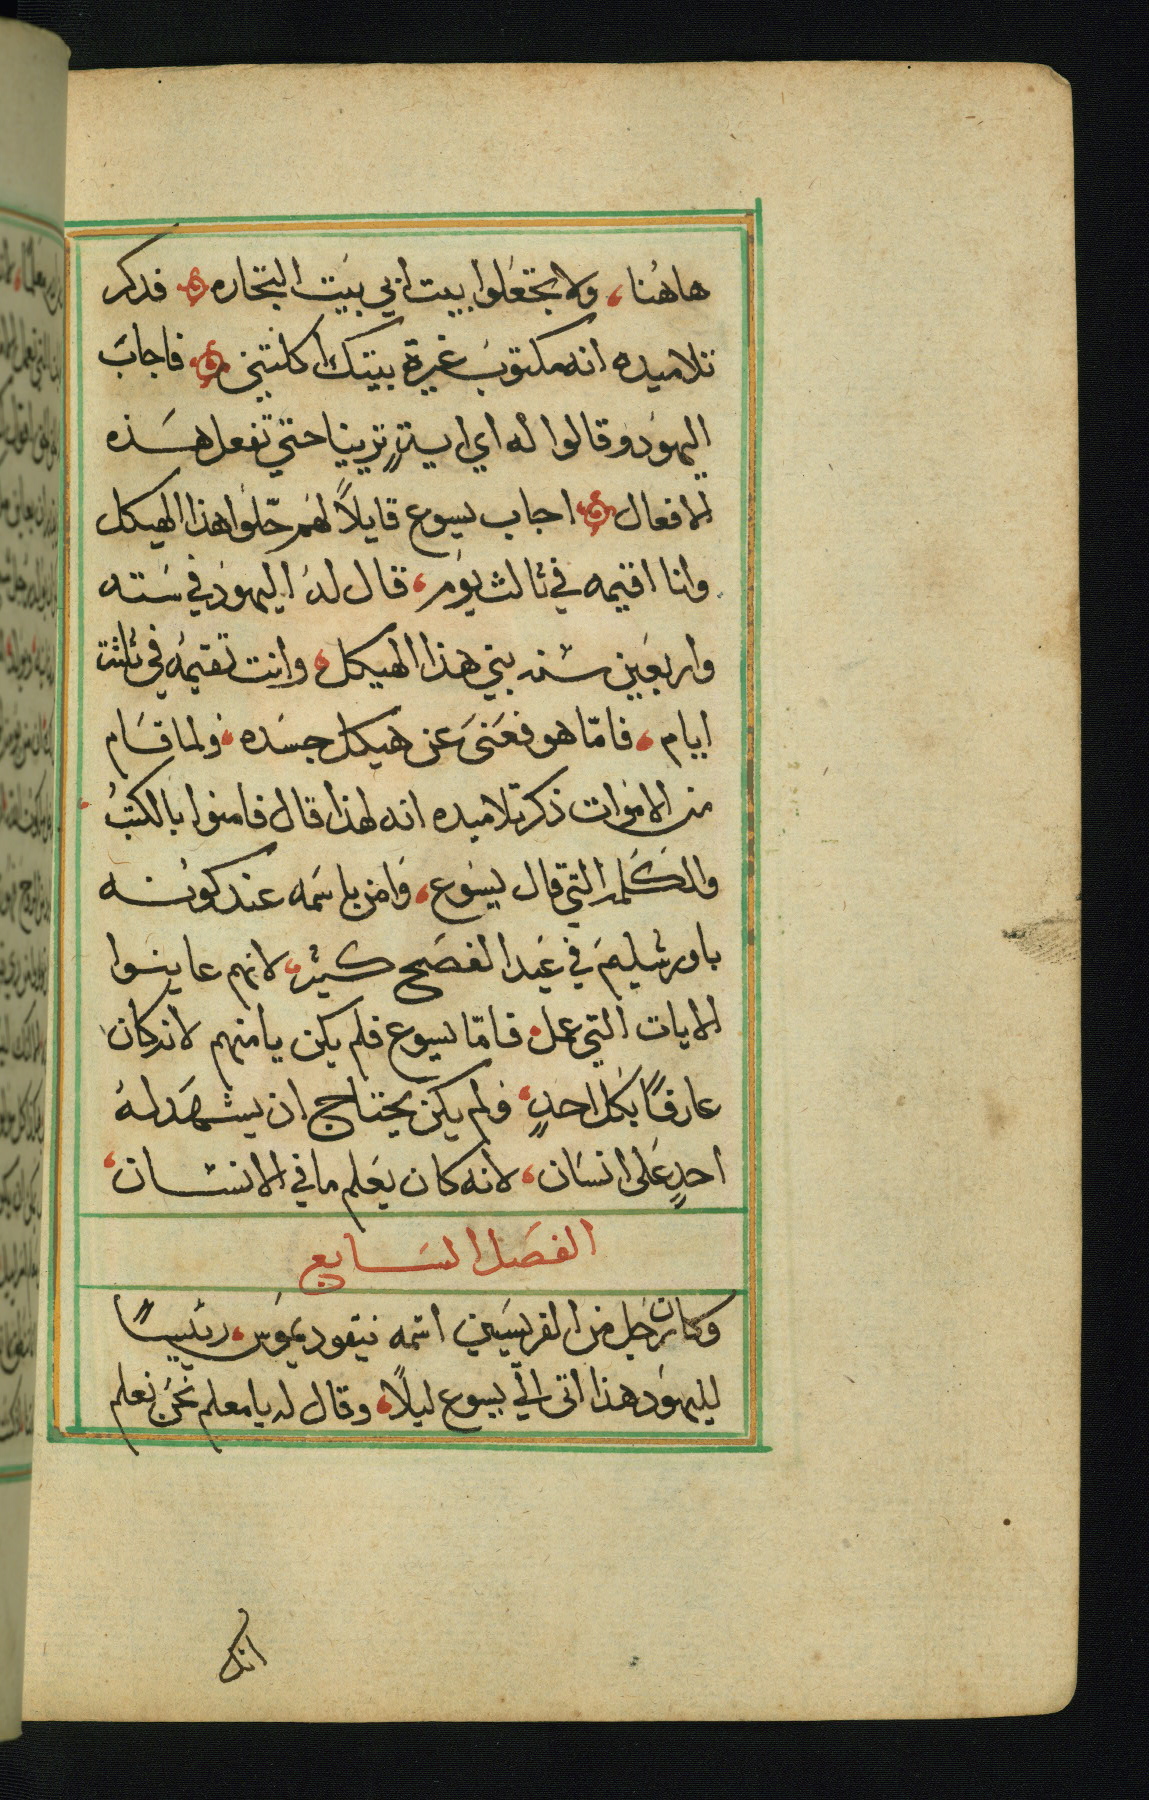 هاهُنا، ولا تجعَلوا بيت ابي بَيت التجاره فدكر
تلاميده انه مكتوبَ غيرة بيتك اكلتني فاجابَ
اليهود وقالوا له اي ايةٍ ترينا حتي تفعل هَذه
الافعال اجاب يسوع قايلاً لهُم حّلوُا هذا الهيكل
وانا اقيمه في ثالث يوَم، قال لهُ اليهوُد في سَته
واربعَين سنه بني هذا الهيكل، وانت تقيمهُ في ثلثة
ايام، فامّا هو فعَنىَ عن هيكل جسَده، ولما قَام
من الاموَات ذكر تلاميده انه لهذا قال فامنوا بالكتبُ
والكَلمه التي قال يسَوع، وَامن باسَمه عند كونه
باورشليمَ في عَيد الفصَح كثير، لانهم عاينوا
الايات التي عمل، فامّا يسوع فلم يكن يامنهم لانه كان
عارفًا بكَل احدٍ، ولم يكن يحتاج ان يشهَد لهُ
احدٍ عَلى انسَان، لانه كان يعَلم ما في الانسَان،
الفصَل السَابع
وكان رَجل من الفريسَين اسمه نيقوديموَس، رئيسًا
لليهوَد هذا اتى الي يسوع ليلًا، وقال له يا معلم نحَن نعلم
انك